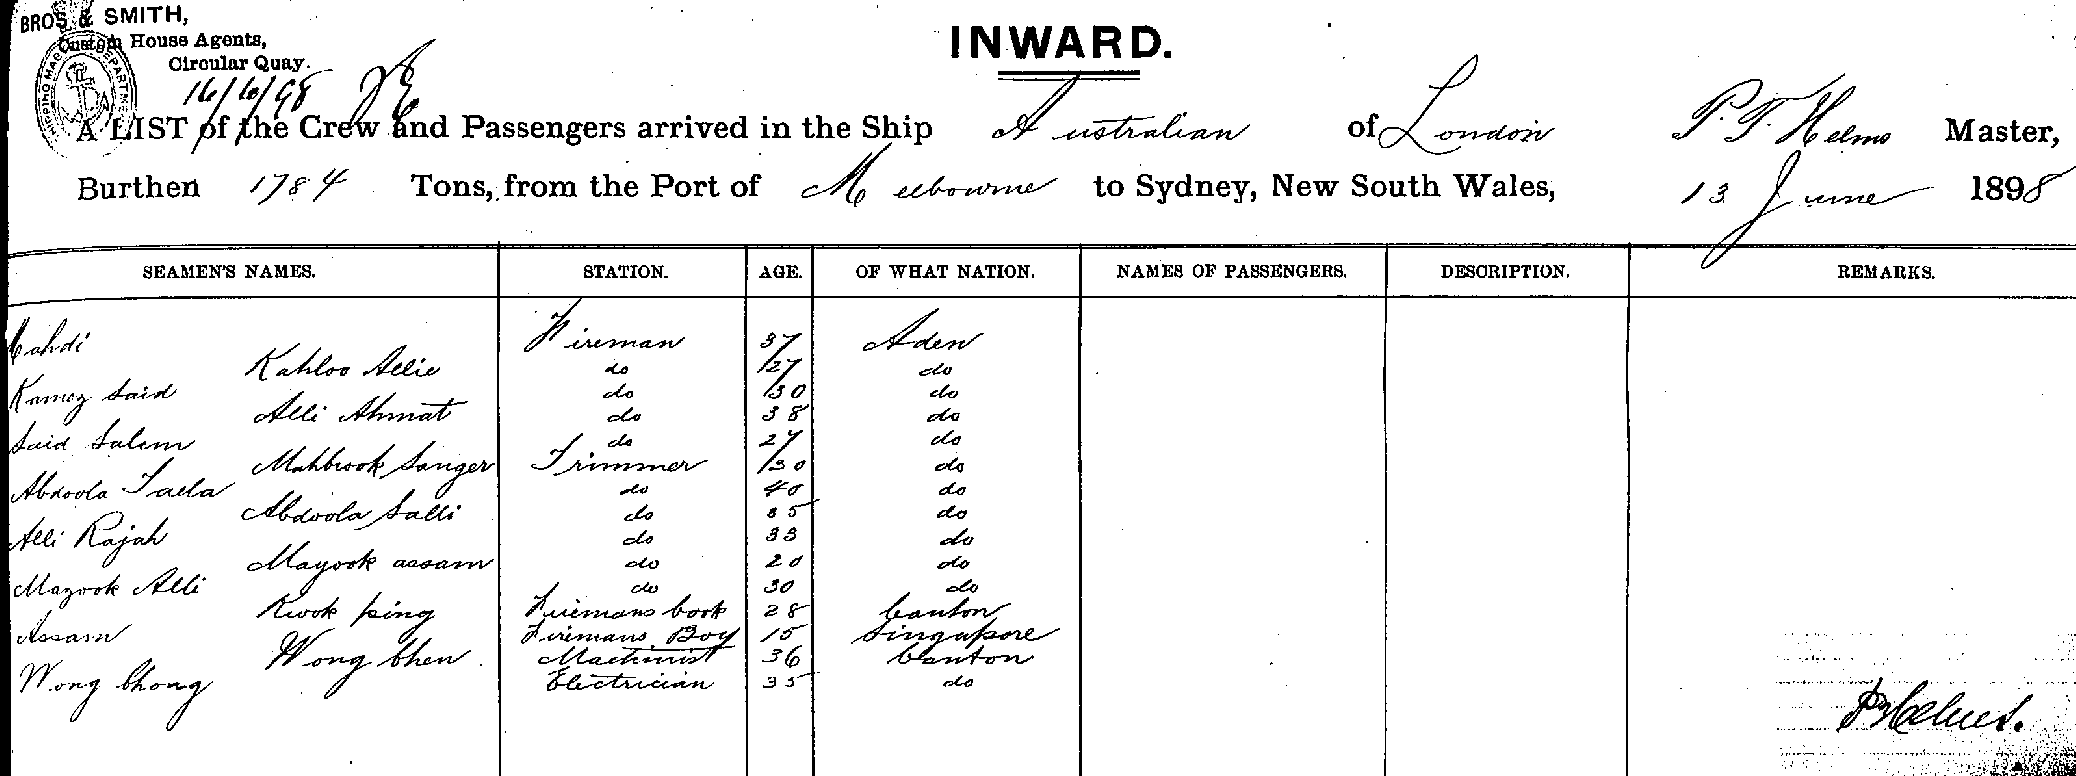 BROS & SMITH,
Custom House Agents,
Circular Quay.
16/6/98
INWARD.
A LIST of the Crew and Passengers arrived in the Ship Australian of London P. T. Helms Master,
Burthen 1784 Tons, from the Port of Melbourne to Sydney, New South Wales, 13 June 1898
SEAMEN'S NAMES. STATION. AGE. OF WHAT NATION. NAMES OF PASSENGERS. DESCRIPTION. REMARKS.
Mahdi Fireman 37 Aden
Kahloo Allie do 27 do
Kamoz Said do 30 do
Alli Ahmat do 38 do
Said Salem do 27 do
Mahbrook Sanger Trimmer 30 do
Abdoola Taela do 40 do
Abdoola Salli do 35 do
Alli Rajah do 33 do
Mayook assam do 20 do
Mazook Alli do 30 do
Kwok ping Firemans Cook 28 Canton
Assam Firemans Boy 15 Singapore
Wong Chen Machinist 36 Canton
Wong Chong Electrician 35 do